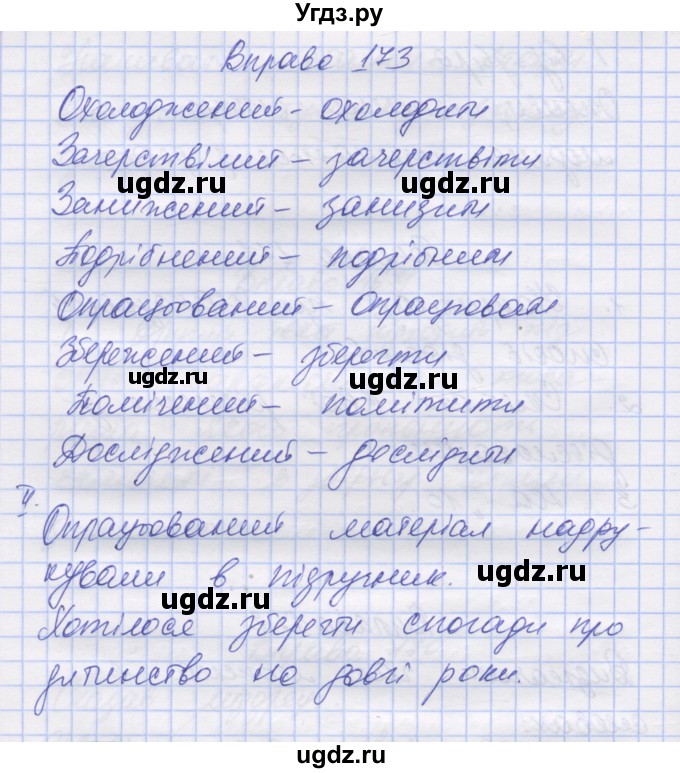 Угдз.ру
Вправа 173
Охолоджений – охолодити
Зачерствілий – зачерствіти
ugdz.ru ugdz.ru
Занижений – занизити
Подрібнений – подрібнити
Опрацьований – опрацювати
Збережений – зберегти
ugdz.ru ugdz.ru
Помічений – помітити
Досліджений – дослідити
II.
Опрацьований матеріал надру-
кували в підручник. ugdz.ru
ugdz.ru
Хотілося зберегти спогади про
дитинство на довгі роки.
ugdz.ru